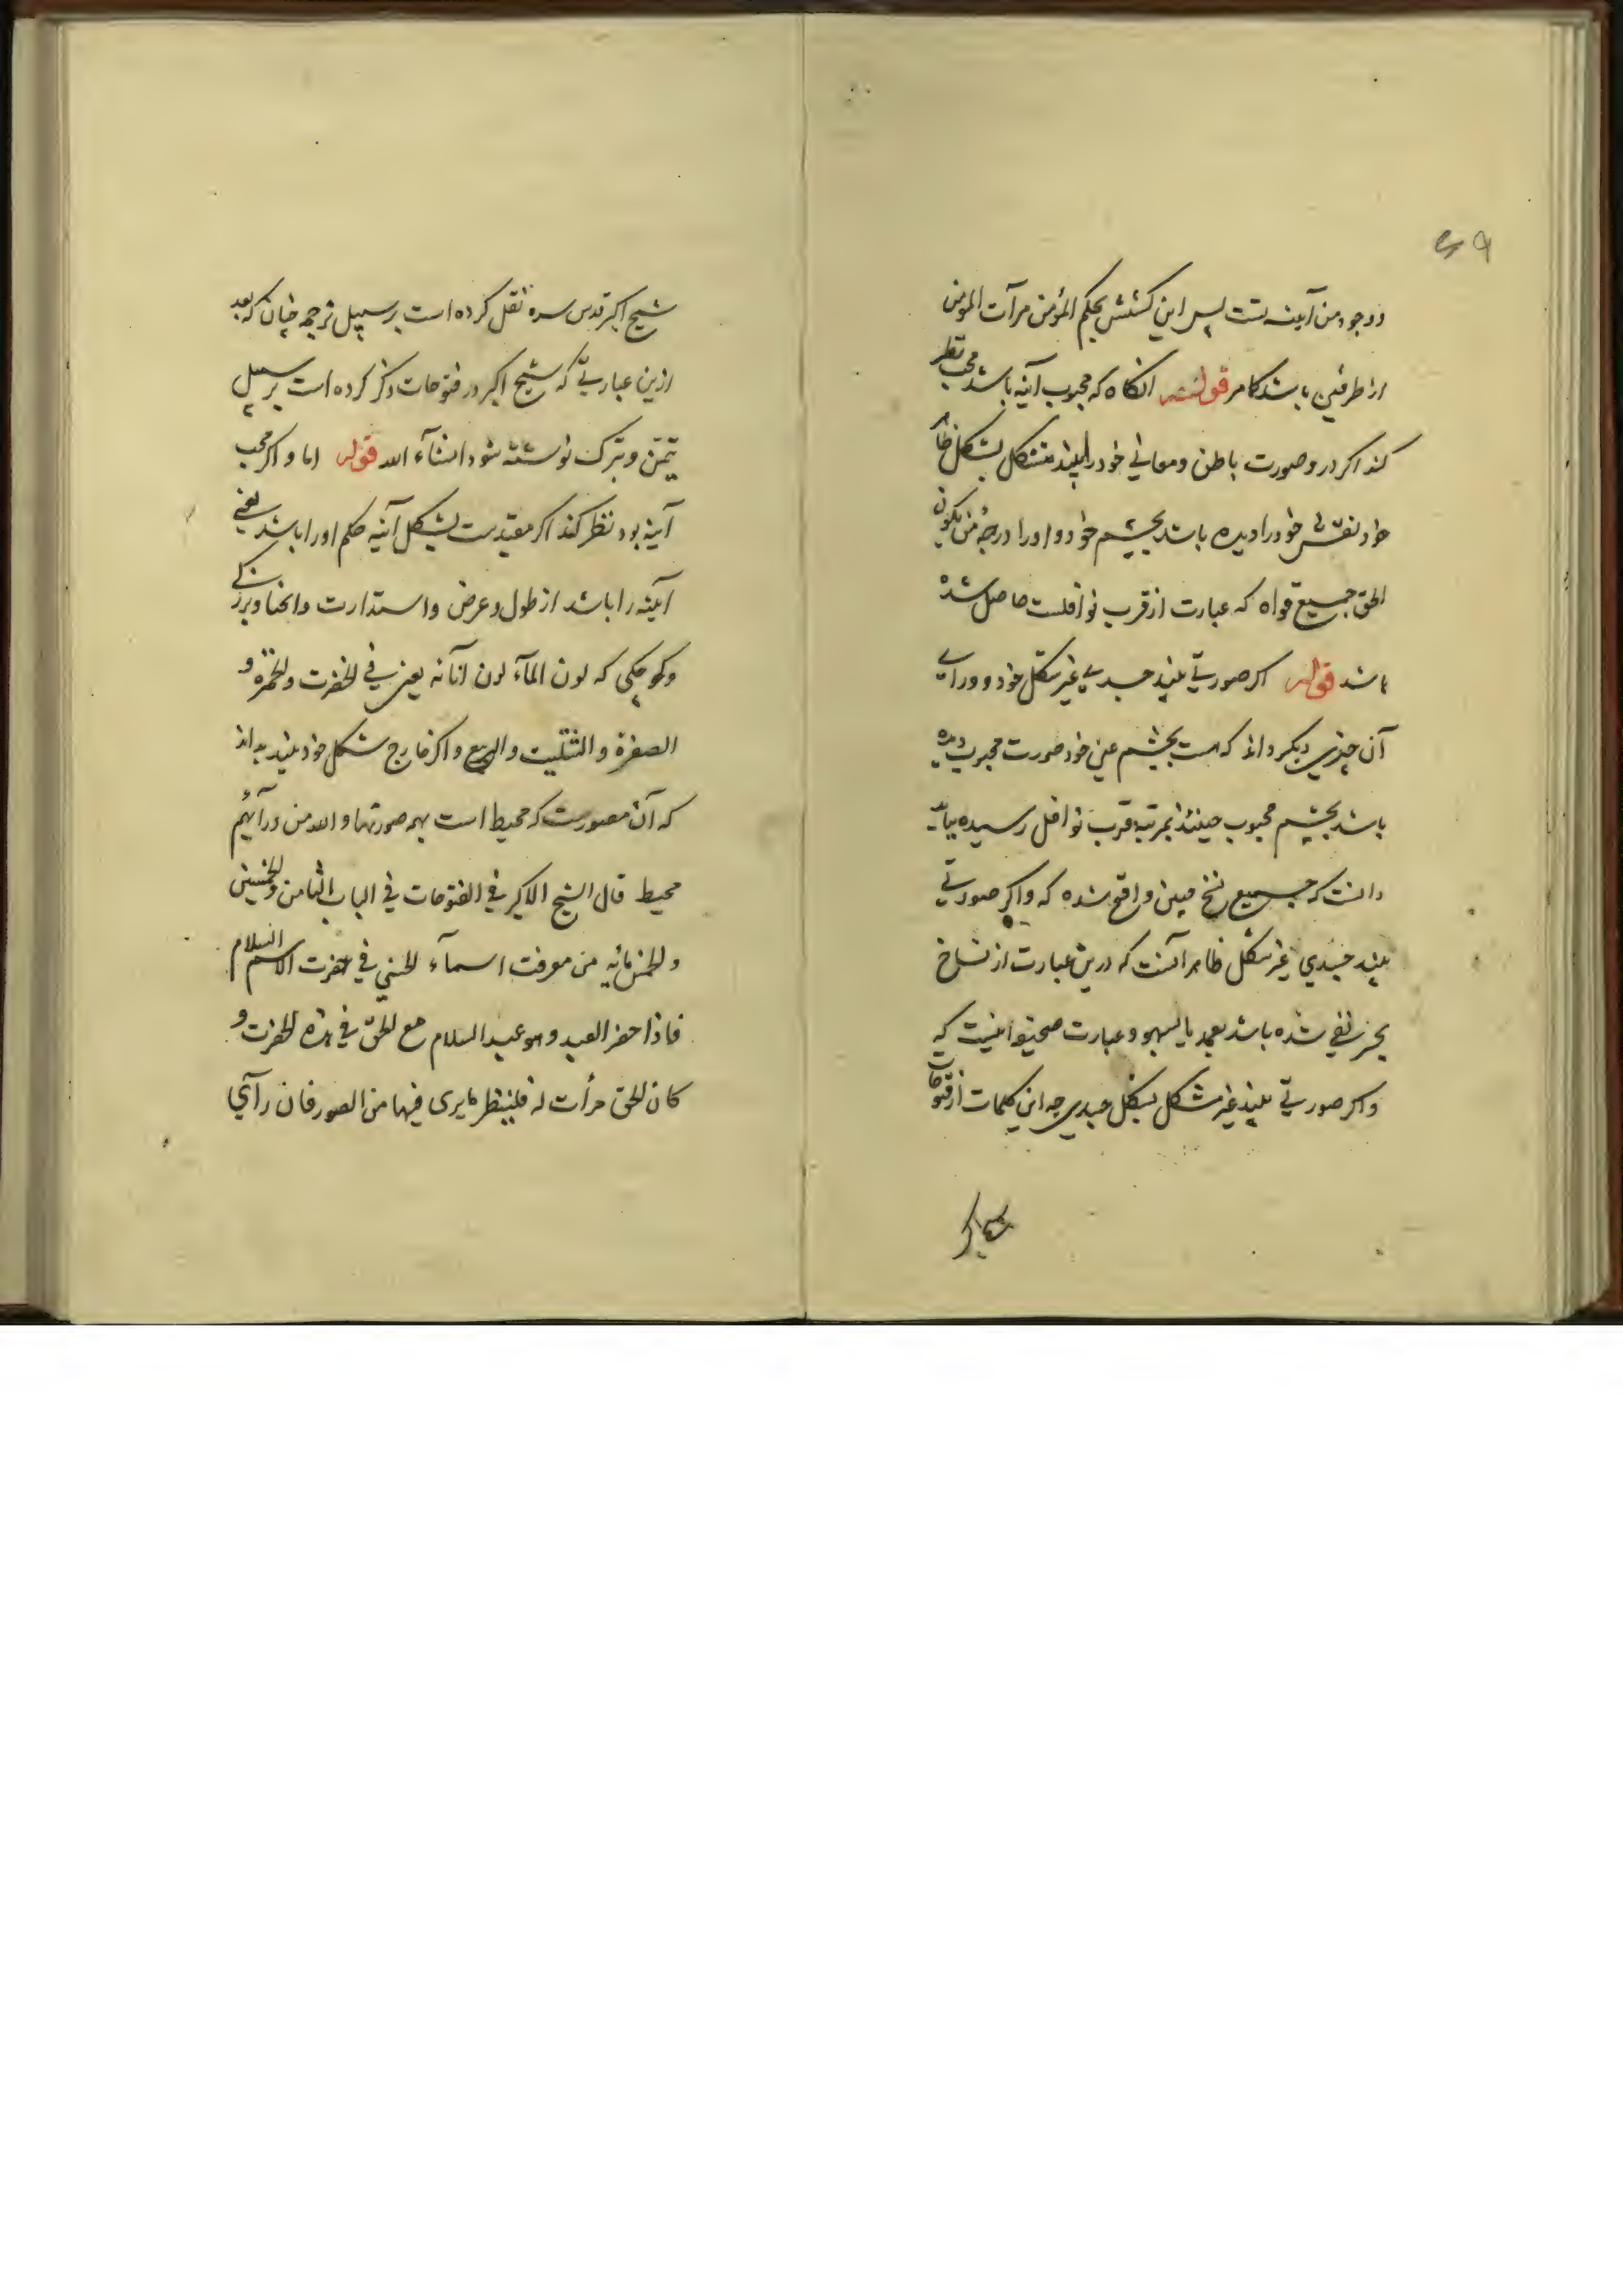 ووجود من آینه تست پس این کشش بحکم المؤمن مرآت المومن
از طرفین باشد کامر قوله آنکاه که محبوب آینه باشد محب نظر
کند اکر درو صورت باطن ومعانی خود را بیند متشکل بشکل ظاهر
خود نفس خود را دیده باشد بچشم خود واورا درجهٔ من یکون
الحق جمیع قواه که عبارت از قرب نوافلست حاصل شده
باشد قوله اکر صورتی بیند جسدی غیر شکل خود و ورای
آن چیزی دیکر داند که هست بچشم عین خود صورت محبوب دیده
باشد بچشم محبوب حینئذ بمرتبه قرب نوافل رسیده بباید
دانست که جمیع نسخ چنین واقع شده که واکر صورتی
بیند جسدی غیر شکل ظاهر آنست که درین عبارت از نساخ
تحریفی شده باشد بعمد یا بسهو وعبارت صحیح اینست که
واکر صورتی بیند غیر شکل بشکل جسدی چه این کلمات از فتوحات
شیخ اکبر
شیخ اکبر قدس سره نقل کرده است بر سبیل ترجمه چنان که بعد
ازین عبارتی که شیخ اکبر در فتوحات ذکر کرده است بر سبیل
تیمّن وتبرک نوشته شود انشآء الله قوله اما و اکر محب
آینه بود نظر کند اکر مقیدست بشکل آینه حکم اورا باشد یعنی
آینه را باشد از طول وعرض واستدارت وانحنا وبزرکی
وکوچکی که لون المآء لون انآئه یعنی فی الخضرت والحمرة و
الصفرة و التثلیث و الربع واکر خارج شکل خود بیند بداند
که آن مصورست که محیط است بهمه صورتها و الله من ورآئهم
محیط قال الشیخ الاکبر فی الفتوحات فی الباب الثامن والخمسین
والخمسمائه من معرفت اسمآء الحسنی فی حضرت الاسم السلام
فاذا حضر العبد وهو عبد السلام مع الحق فی هذه الحضرت و
کان الحق مرأت له فلینظر ما یری فیها من الصور فان رآی